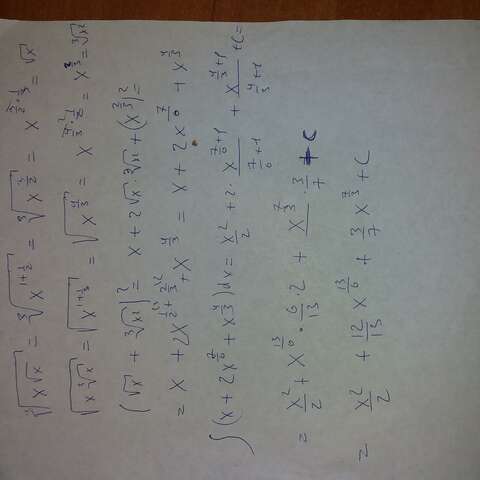 ∛(x√x) = ∛(x^(1+1/2)) = ∛(x^(3/2)) = x^(3/2 · 1/3) = √x
√(x∛x) = √(x^(1+1/3)) = √(x^(4/3)) = x^(4/3 · 1/2) = x^(2/3) = ∛(x²)
(√x + ∛(x²))² = x + 2√x · ∛(x²) + (x^(2/3))² =
= x + 2x^(1/2 + 2/3) + x^(4/3) = x + 2x^(7/6) + x^(4/3)
∫(x + 2x^(7/6) + x^(4/3))dx = x²/2 + 2 · x^(7/6+1)/(7/6+1) + x^(4/3+1)/(4/3+1) + C =
= x²/2 + x^(13/6) · 6/13 · 2 + x^(7/3) · 3/7 + C
= x²/2 + 12/13 x^(13/6) + 3/7 x^(7/3) + C